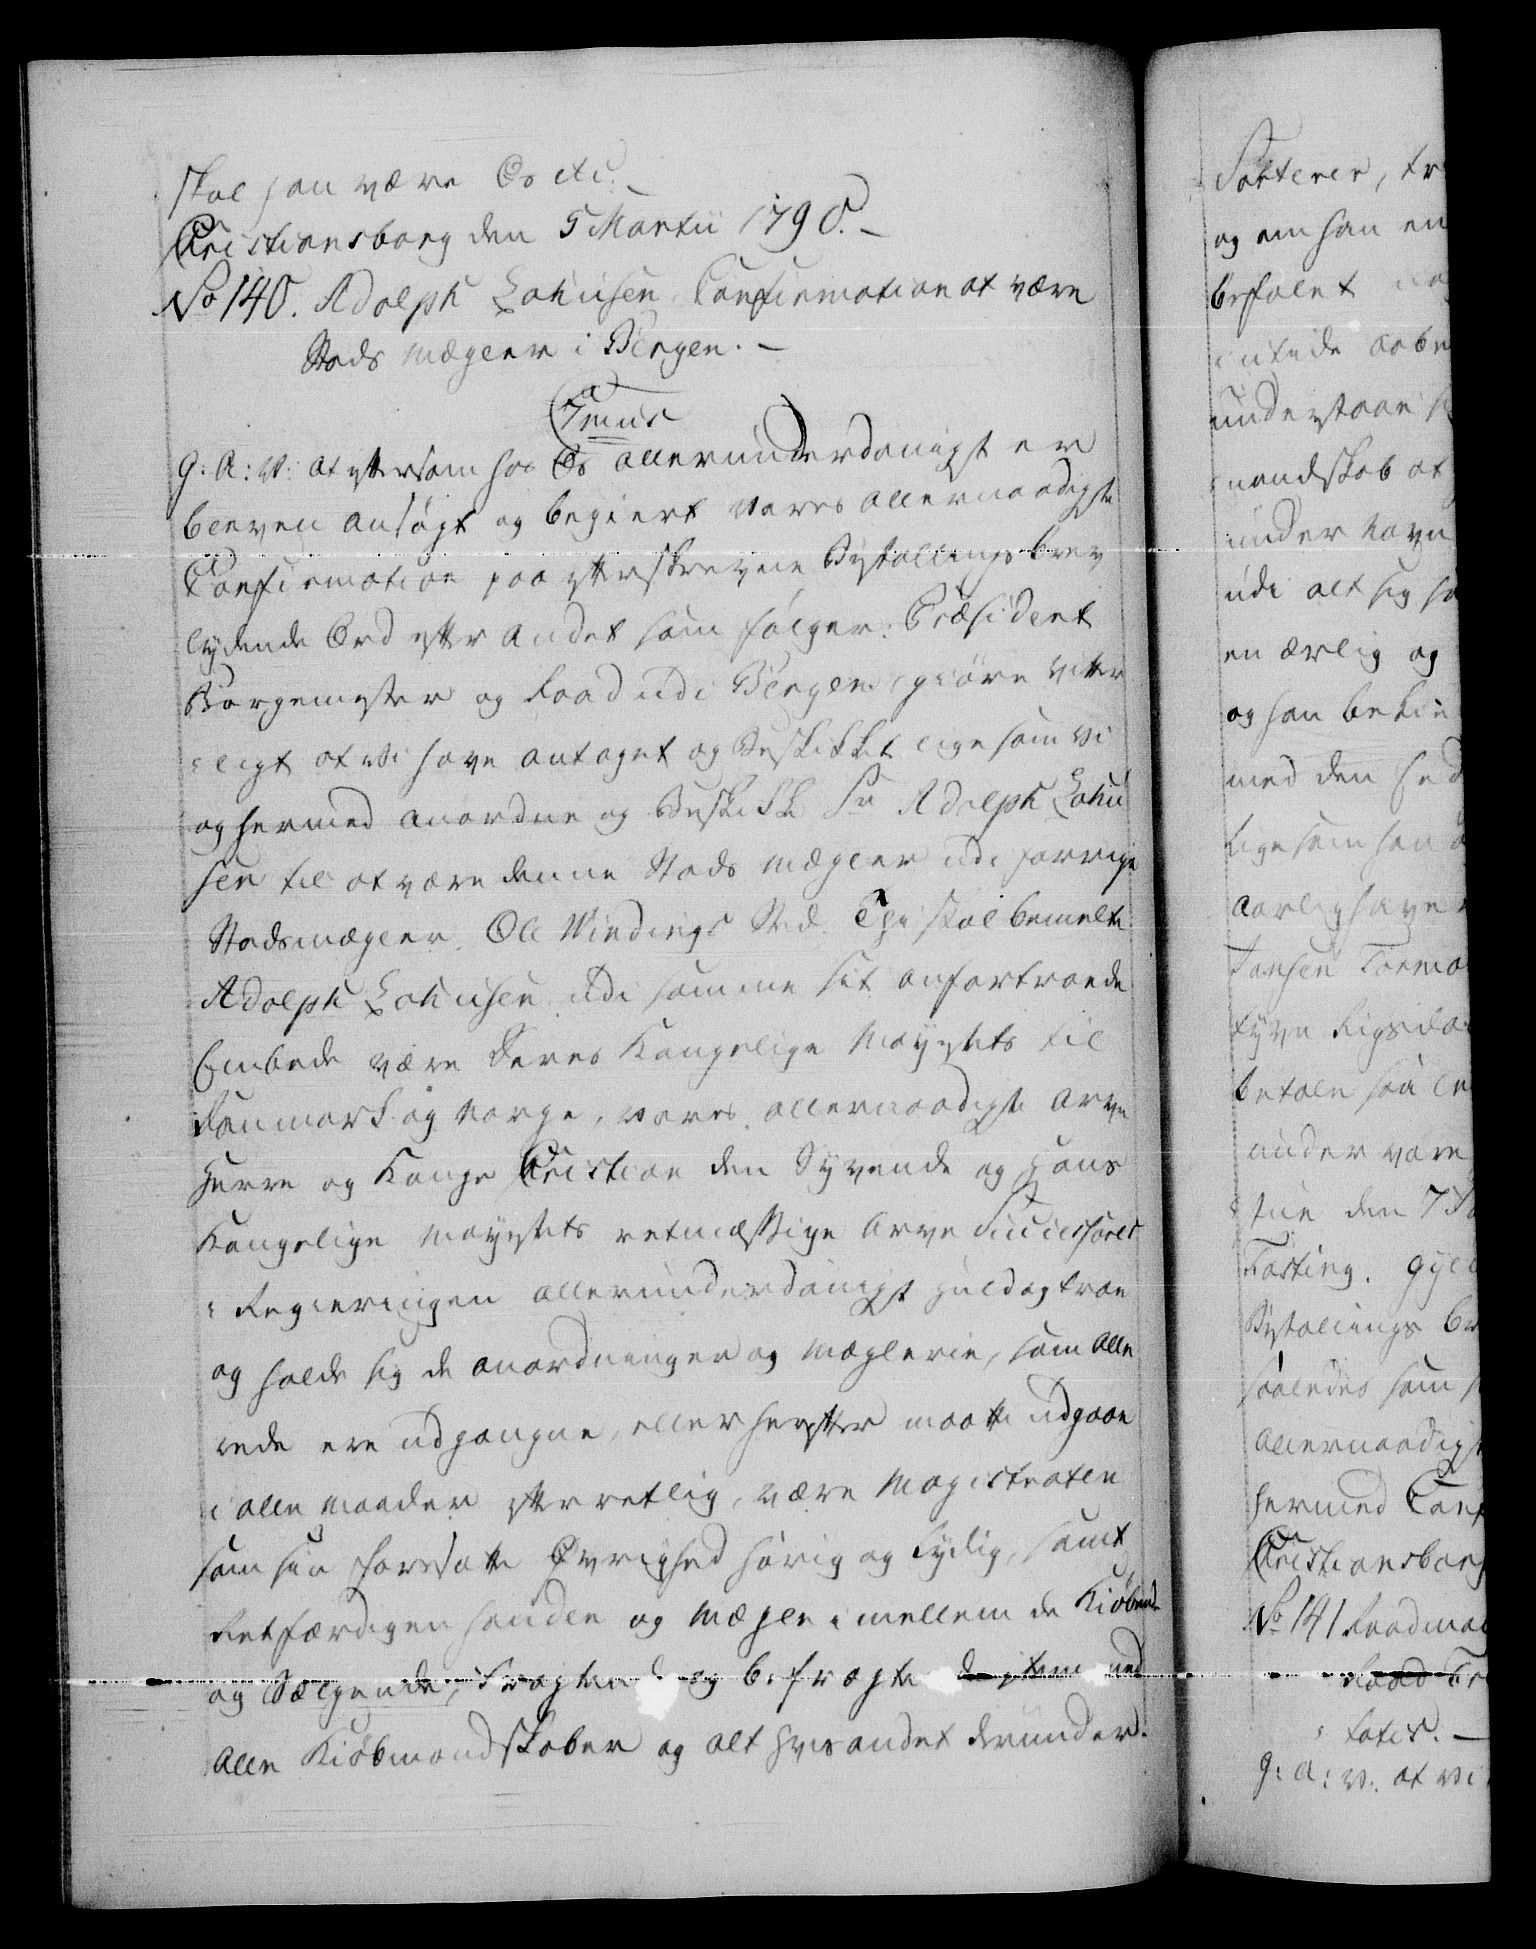 skal han være Os etc:
Christiansborg den 5 Martii 1790.
No 140. Adolph Lohusen Confirmation at være
Stads Mægler i Bergen.
C 7mus
G: A: V: At eftersom hos Os allerunderdanigst er
bleven ansøgt og begiert Vores allernaadigste
Confirmation paa efterskrevne Bestallings brev
lydende Ord efter Andet som følger: Præsident
Borgemester og Raad udi Bergen, giøre vitter
ligt at vi have antaget og Beskikket ligesom vi
og hermed anordne og Beskikke Sr Adolph Lohu
sen til at være denne Stads Mægler udi forrige
Stadsmægler Ole Windings Sted. Thi skal bemelte
Adolph Lohusen udi samme sit anfortroede
Embede være Deres Kongelige Mayestets til
Danmark og Norge, vores allernaadigste Arve
Herre og Konge Christian den Syvende og Hans
Kongelige Mayestets retmæssige Arve Successores
i Regieringen allerunderdanigst huld og troe
og holde sig de anordninger og Mæglerie, som Alle
rede ere udgangne, eller herefter maatte udgaae
i alle maader efterretlig, være Magistraten
som sin foresatte Øvrighed hørig og lydig, samt
Retfærdigen handle og Mægle imellem de Kiøbende
og Sælgende, Fragtend og befragte de item ved
Alle Kiøbmandskaber og alt hvis andet derunder
Sorterer, tr
og om han en
befalet
intide aabe
understaae
mandskab at
under Navn
udi alt sig
en ærlig og
og han bekie
med den
ligesom han
Aarlig have
Jansen Torm
tyve Rigsda
betale saale
under vore
stue den 7
Fasting. Gyl
Bestallings br
saaledes som
Allernaadigst
hermed Conf
Christiansborg
No 141 Raadma
Raad
tatis.
G: A: V: at vi